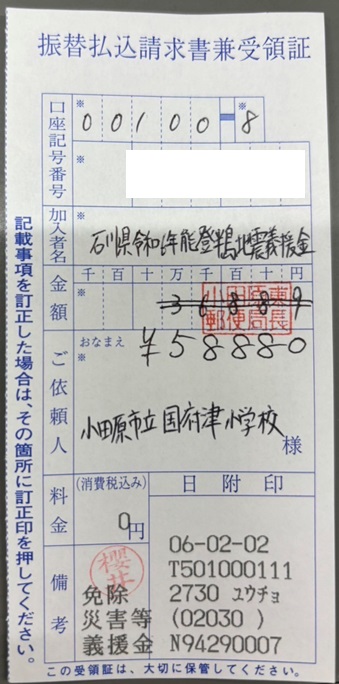 振替払込請求書兼受領証
口座記号番号
※ 00100-8 ※
※
加入者名
※
石川県令和6年能登半島地震義援金
金額
千百十万千百十円
※
小田原東郵便局長
¥58880
ご依頼人
おなまえ
※
小田原市立国府津小学校
様
料金
(消費税込み)
0円
日附印
備考
櫻井
免除
災害等
義援金
06-02-02
T501000111
2730 ユウチョ
(02030 )
N94290007
記載事項を訂正した場合は、その箇所に訂正印を押してください。
この受領証は、大切に保管してください。